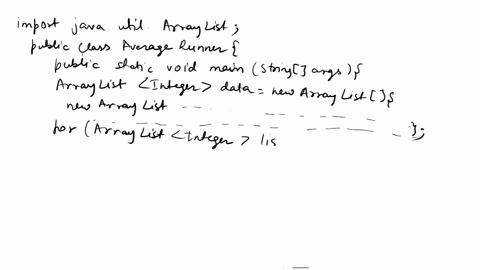 import java util ArrayList;
public class Average Runner{
public static void main (String[] args){
ArrayList <Integer> data = new ArrayList []{
new ArrayList - - - - - - - - - };
for (ArrayList <Integer> lis